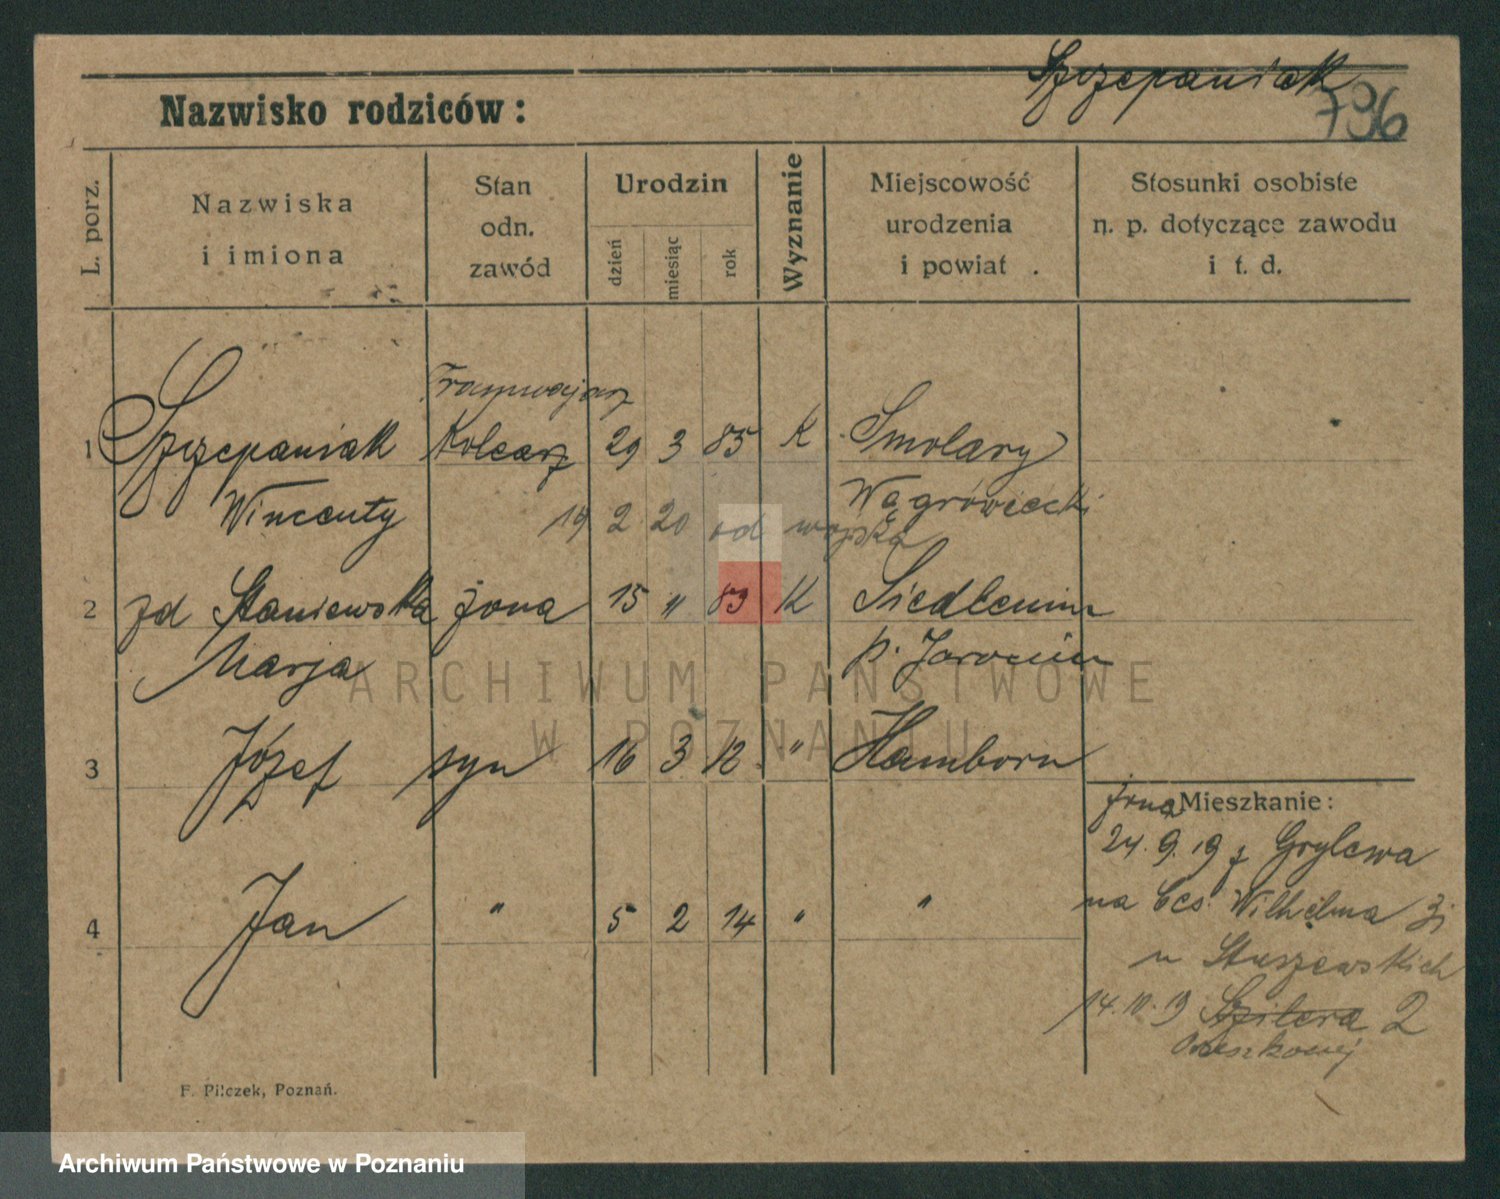 Szczepaniak
796
Nazwisko rodziców:
L. porz.
Nazwiska
i imiona
Stan
odn.
zawód
Urodzin
dzień
miesiąc
rok
Wyznanie
Miejscowość
urodzenia
i powiat .
Stosunki osobiste
n. p. dotyczące zawodu
i t. d.
Tramwajarz
1 Szczepaniak Kolearz 29 3 85 K Smolary
Wincenty Wągrówiecki
19 2 20 od wojska
2 zd Staniewska żona 15 " 83 K Siedlemin
Marja p. Jarocin
3 Józef syn 16 3 12 " Hamborn
4 Jan " 5 2 14 " "
żona Mieszkanie:
24.9.19 z Grylewa
na Ces. Wilhelma
u Staszewskich
14.10.19 Szilera 2
F. Pilczek, Poznań.
ARCHIWUM PAŃSTWOWE
W POZNANIU
Archiwum Państwowe w Poznaniu